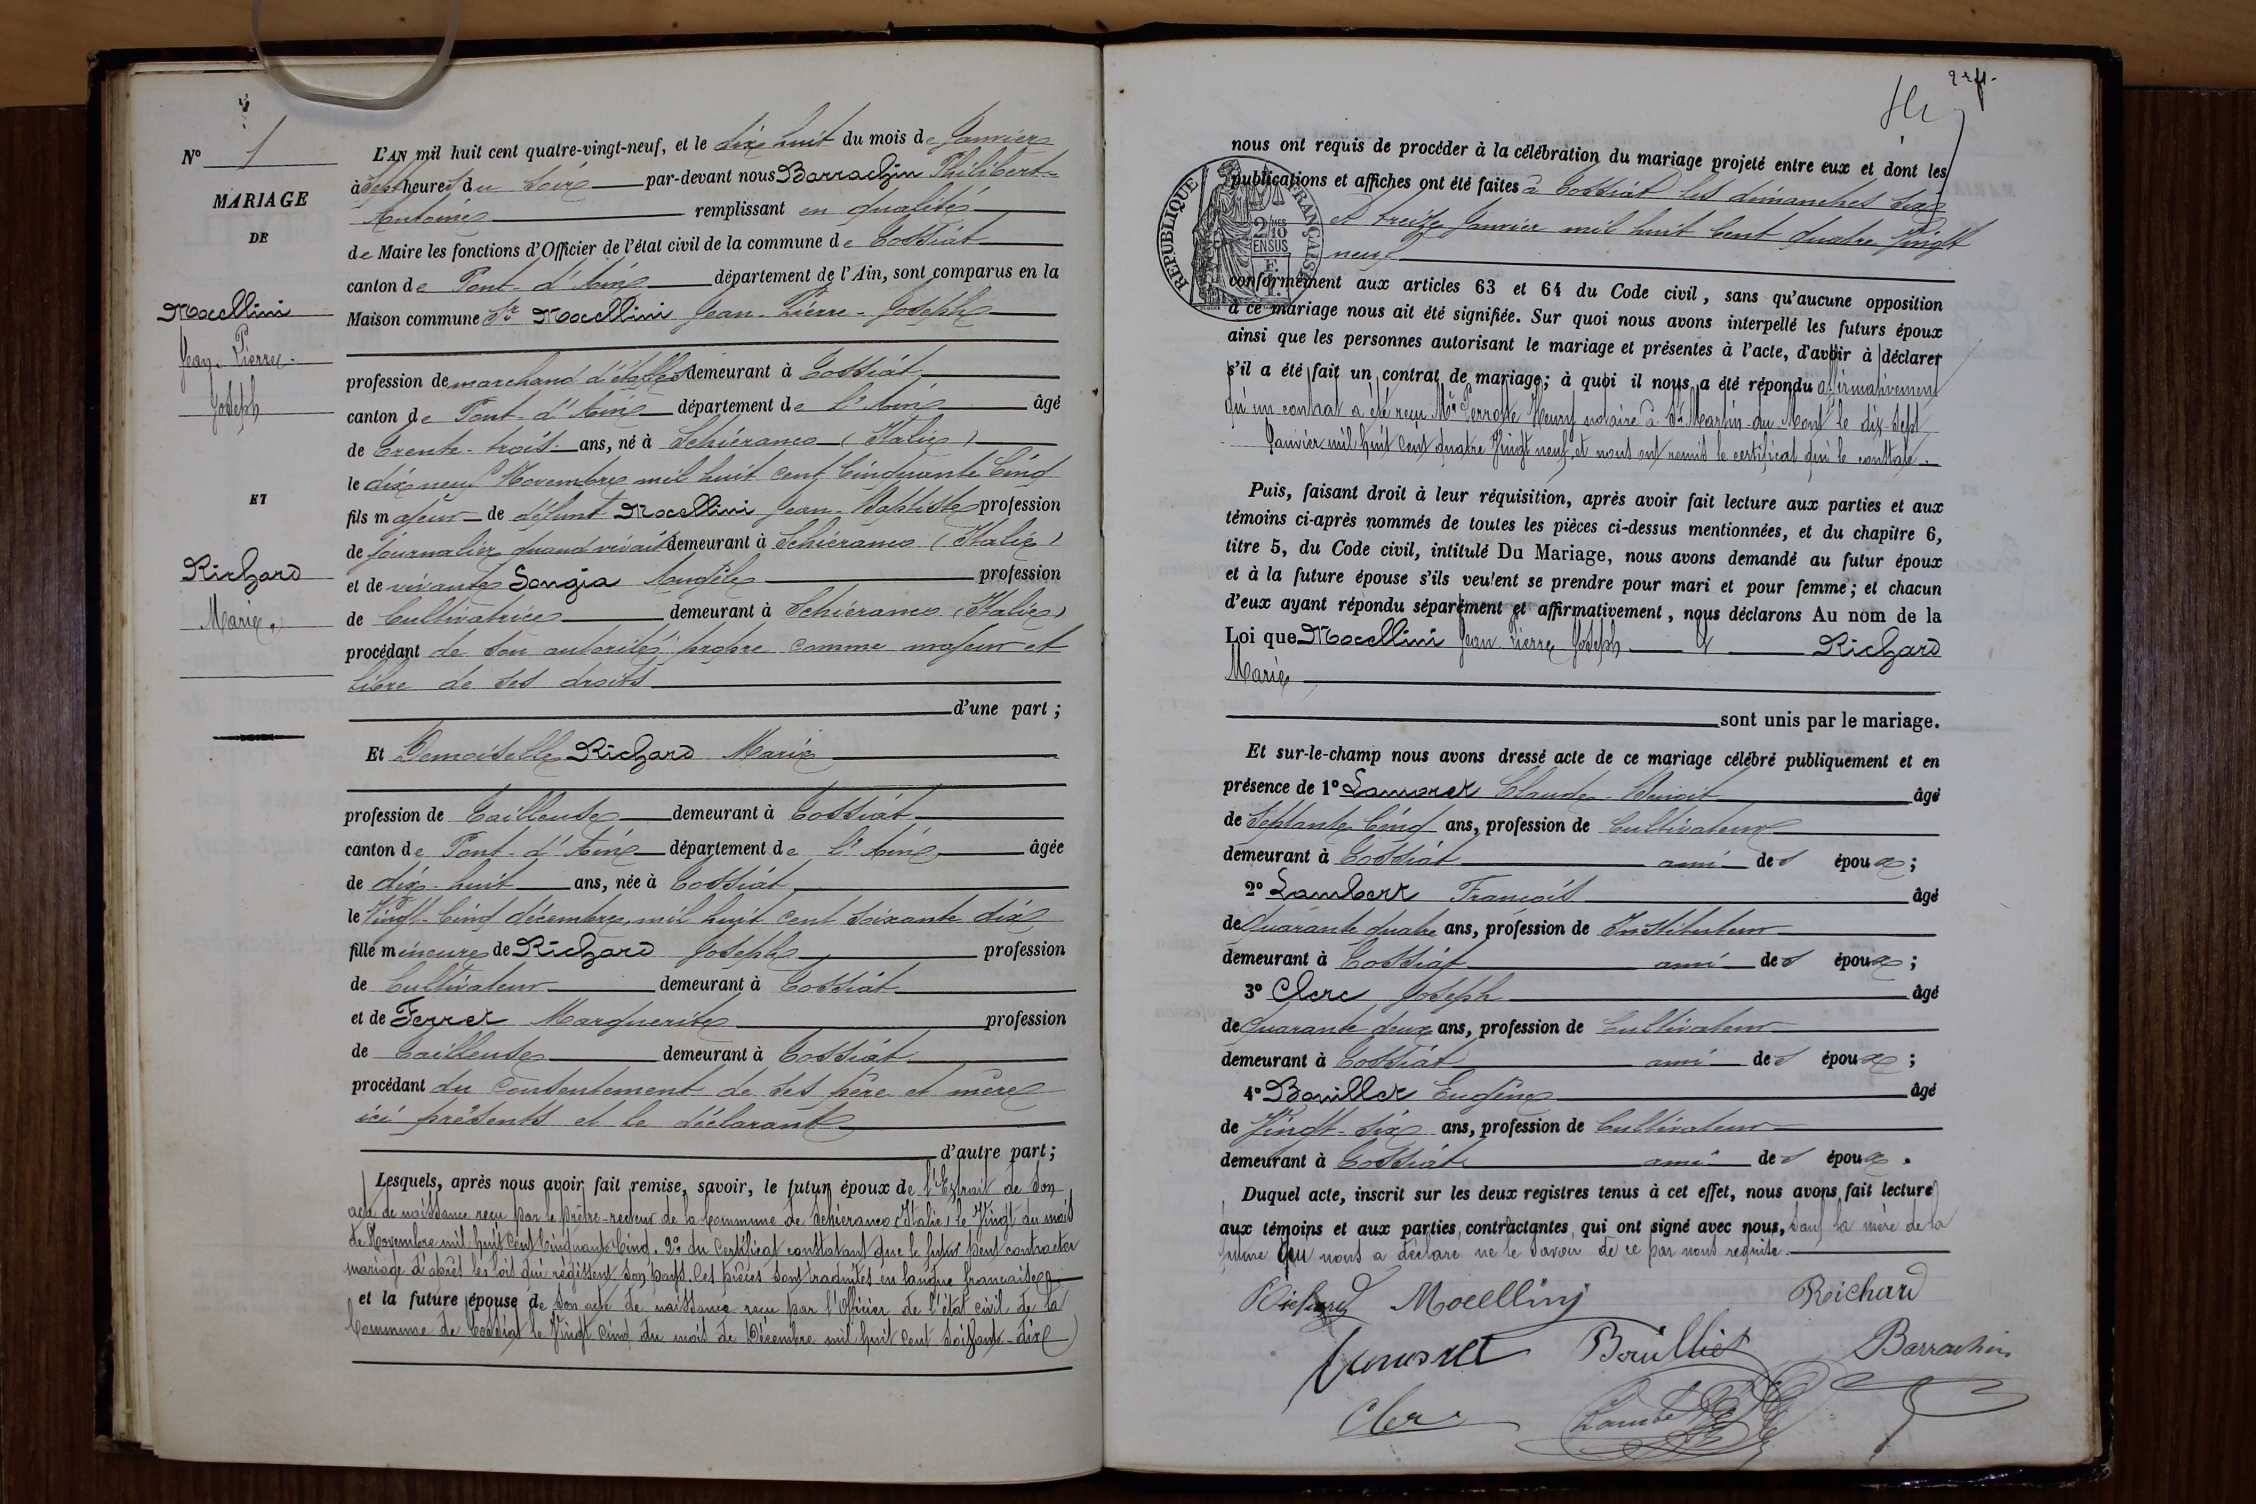 N° 1
MARIAGE
DE
Mocellini
Jean-Pierre-
Joseph
ET
Richard
Marie
L'AN mil huit cent quatre-vingt-neuf, et le dix huit du mois de Janvier
à sept heures du soir par-devant nous Barrachin Philibert-
Antoine remplissant en qualité
de Maire les fonctions d'Officier de l'état civil de la commune de Tossiat
canton de Pont-d'Ain département de l'Ain, sont comparus en la
Maison commune Sr Mocellini Jean-Pierre-Joseph
profession de marchand d'étoffes demeurant à Tossiat
canton de Pont-d'Ain département de l'Ain âgé
de trente-trois ans, né à Schieranco (Italie)
le dix neuf Novembre mil huit cent cinquante cinq
fils majeur de défunt Mocellini Jean-Baptiste profession
de journalier quand vivait demeurant à Schieranco (Italie)
et de vivante Songia Angèle profession
de Cultivatrice demeurant à Schieranco (Italie)
procédant de son autorité propre comme majeur et
libre de ses droits
d'une part ;
Et Demoiselle Richard Marie
profession de Tailleuse demeurant à Tossiat
canton de Pont-d'Ain département de l'Ain âgée
de dix-huit ans, née à Tossiat
le Vingt-Cinq décembre mil huit cent soixante dix
fille mineure de Richard Joseph profession
de Cultivateur demeurant à Tossiat
et de Ferret Marguerite profession
de Tailleuse demeurant à Tossiat
procédant du consentement de ses père et mère
ici présents et le déclarant
d'autre part ;
Lesquels, après nous avoir fait remise, savoir, le futur époux de l'Extrait de son
acte de naissance reçu par le prêtre-recteur de la Commune de Schieranco (Italie) le Vingt du mois
de Novembre mil huit cent cinquante cinq. 2° du Certificat constatant que le futur peut contracter
mariage d'après les lois qui régissent son pays. Ces pièces sont traduites en langue française
et la future épouse de son acte de naissance reçu par l'Officier de l'état civil de la
Commune de Tossiat le Vingt cinq du mois de Décembre mil huit cent soixante-dix
nous ont requis de procéder à la célébration du mariage projeté entre eux et dont les
publications et affiches ont été faites à Tossiat les dimanches six
et treize Janvier mil huit cent quatre vingt
neuf
RÉPUBLIQUE FRANÇAISE
2/10
EN SUS
conformément aux articles 63 et 64 du Code civil, sans qu'aucune opposition
à ce mariage nous ait été signifiée. Sur quoi nous avons interpellé les futurs époux
ainsi que les personnes autorisant le mariage et présentes à l'acte, d'avoir à déclarer
s'il a été fait un contrat de mariage ; à quoi il nous a été répondu affirmativement
qu'un contrat a été reçu Me Perrotte Henry notaire à St Martin-du-Mont le dix-sept
Janvier mil huit cent quatre vingt neuf, et nous ont remis le certificat qui le constate.
Puis, faisant droit à leur réquisition, après avoir fait lecture aux parties et aux
témoins ci-après nommés de toutes les pièces ci-dessus mentionnées, et du chapitre 6,
titre 5, du Code civil, intitulé Du Mariage, nous avons demandé au futur époux
et à la future épouse s'ils veulent se prendre pour mari et pour femme ; et chacun
d'eux ayant répondu séparément et affirmativement, nous déclarons Au nom de la
Loi que Mocellini Jean Pierre Joseph & Richard
Marie
sont unis par le mariage.
Et sur-le-champ nous avons dressé acte de ce mariage célébré publiquement et en
présence de 1° Lamoret Claude-Benoit âgé
de Septante Cinq ans, profession de Cultivateur
demeurant à Tossiat ami des époux ;
2° Lambert François âgé
de Quarante quatre ans, profession de Instituteur
demeurant à Tossiat ami des époux ;
3° Clerc Joseph âgé
de Quarante deux ans, profession de Cultivateur
demeurant à Tossiat ami des époux ;
4° Bouillet Eugène âgé
de Vingt-six ans, profession de Cultivateur
demeurant à Tossiat ami des époux.
Duquel acte, inscrit sur les deux registres tenus à cet effet, nous avons fait lecture
aux témoins et aux parties contractantes, qui ont signé avec nous, sauf la mère de la
future qui nous a déclaré ne le savoir de ce par nous requise.
Richard Mocellinj Reichard
Bouilliet Barrachin
Clerc Lambert